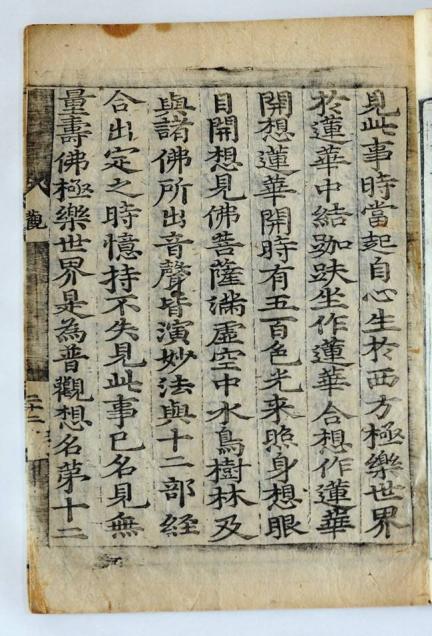 見此事時當起自心生扵西方極樂世界
扵蓮華中結跏趺坐作蓮華合想作蓮華
開想蓮華開時有五百色光来照身想眼
目開想見佛菩薩滿虛空中水鳥樹林及
與諸佛所出音聲皆演妙法與十二部經
合出定之時憶持不失見此事已名見無
量壽佛極樂世界是為普觀想名第十二
觀